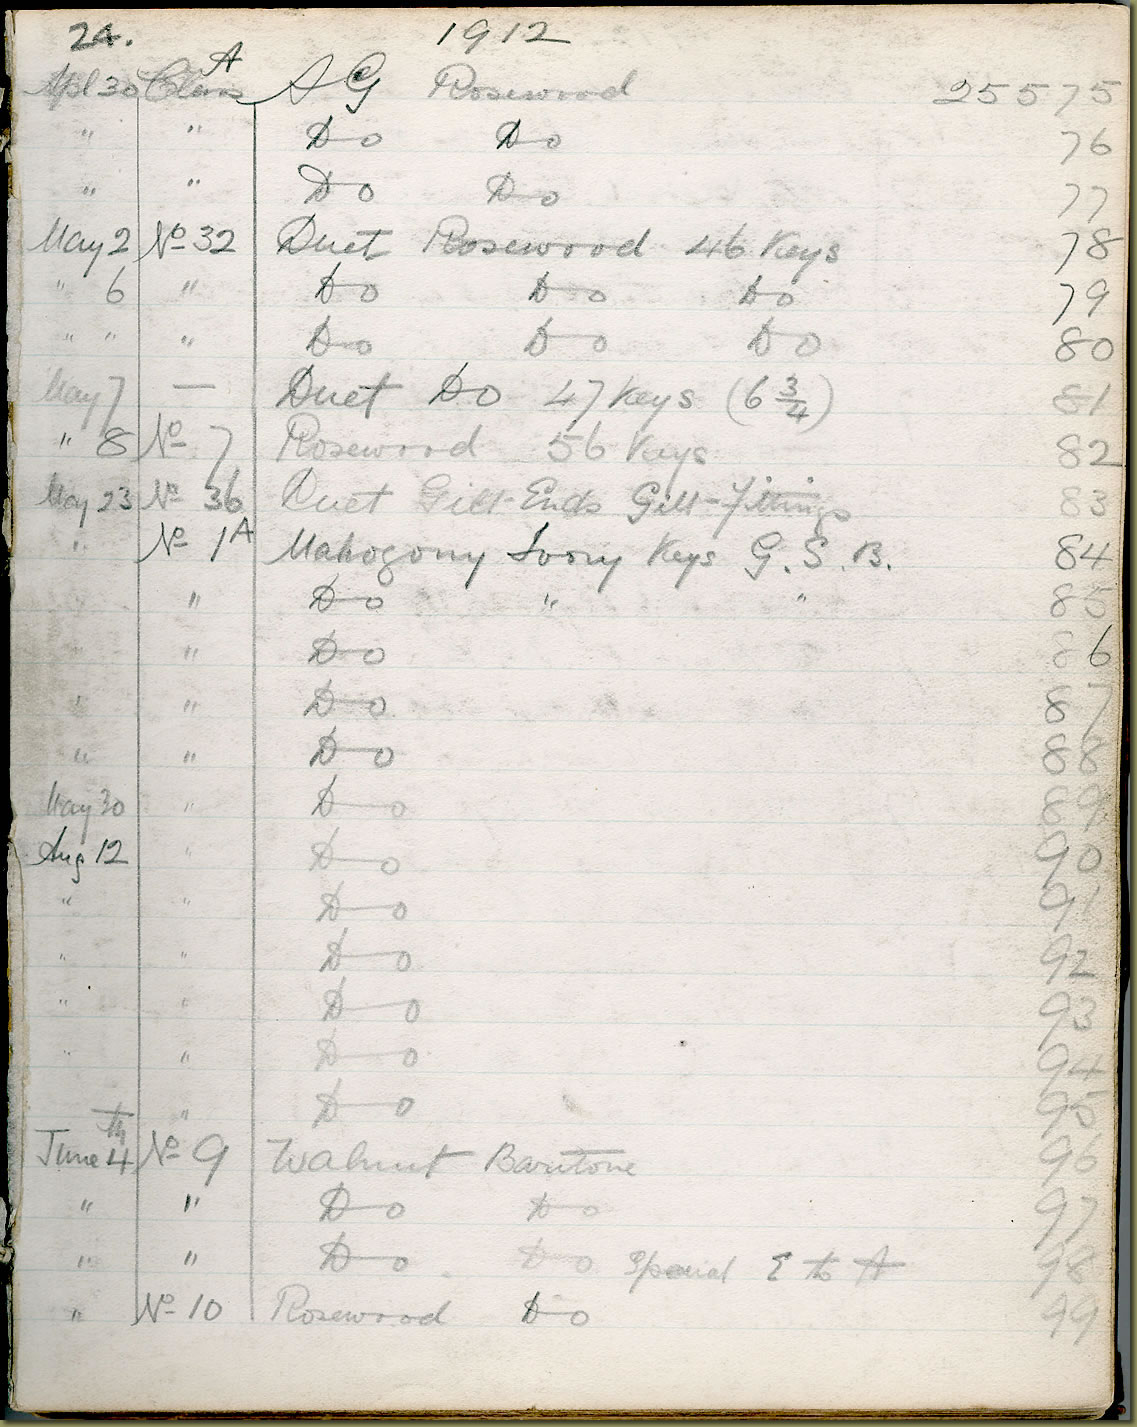 24. 1912
Apl 30 Class A A G Rosewood 25575
" " Do Do 76
" " Do Do 77
May 2 No 32 Duet Rosewood 46 Keys 78
" 6 " Do Do Do 79
" " " Do Do Do 80
May 7 — Duet Do 47 Keys (6 3/4) 81
" 8 No 7 Rosewood 56 Keys 82
May 23 No 36 Duet Gilt-Ends Gilt-Fittings 83
" No 1A Mahogony Ivory Keys G.S.B. 84
" Do " " 85
" " Do 86
" " Do 87
" " Do 88
May 30 " Do 89
Aug 12 " Do 90
" " Do 91
" " Do 92
" " Do 93
" " Do 94
" Do 95
June 4th No 9 Walnut Baritone 96
" " Do Do 97
" " Do Do Special E to A 98
" No 10 Rosewood Do 99